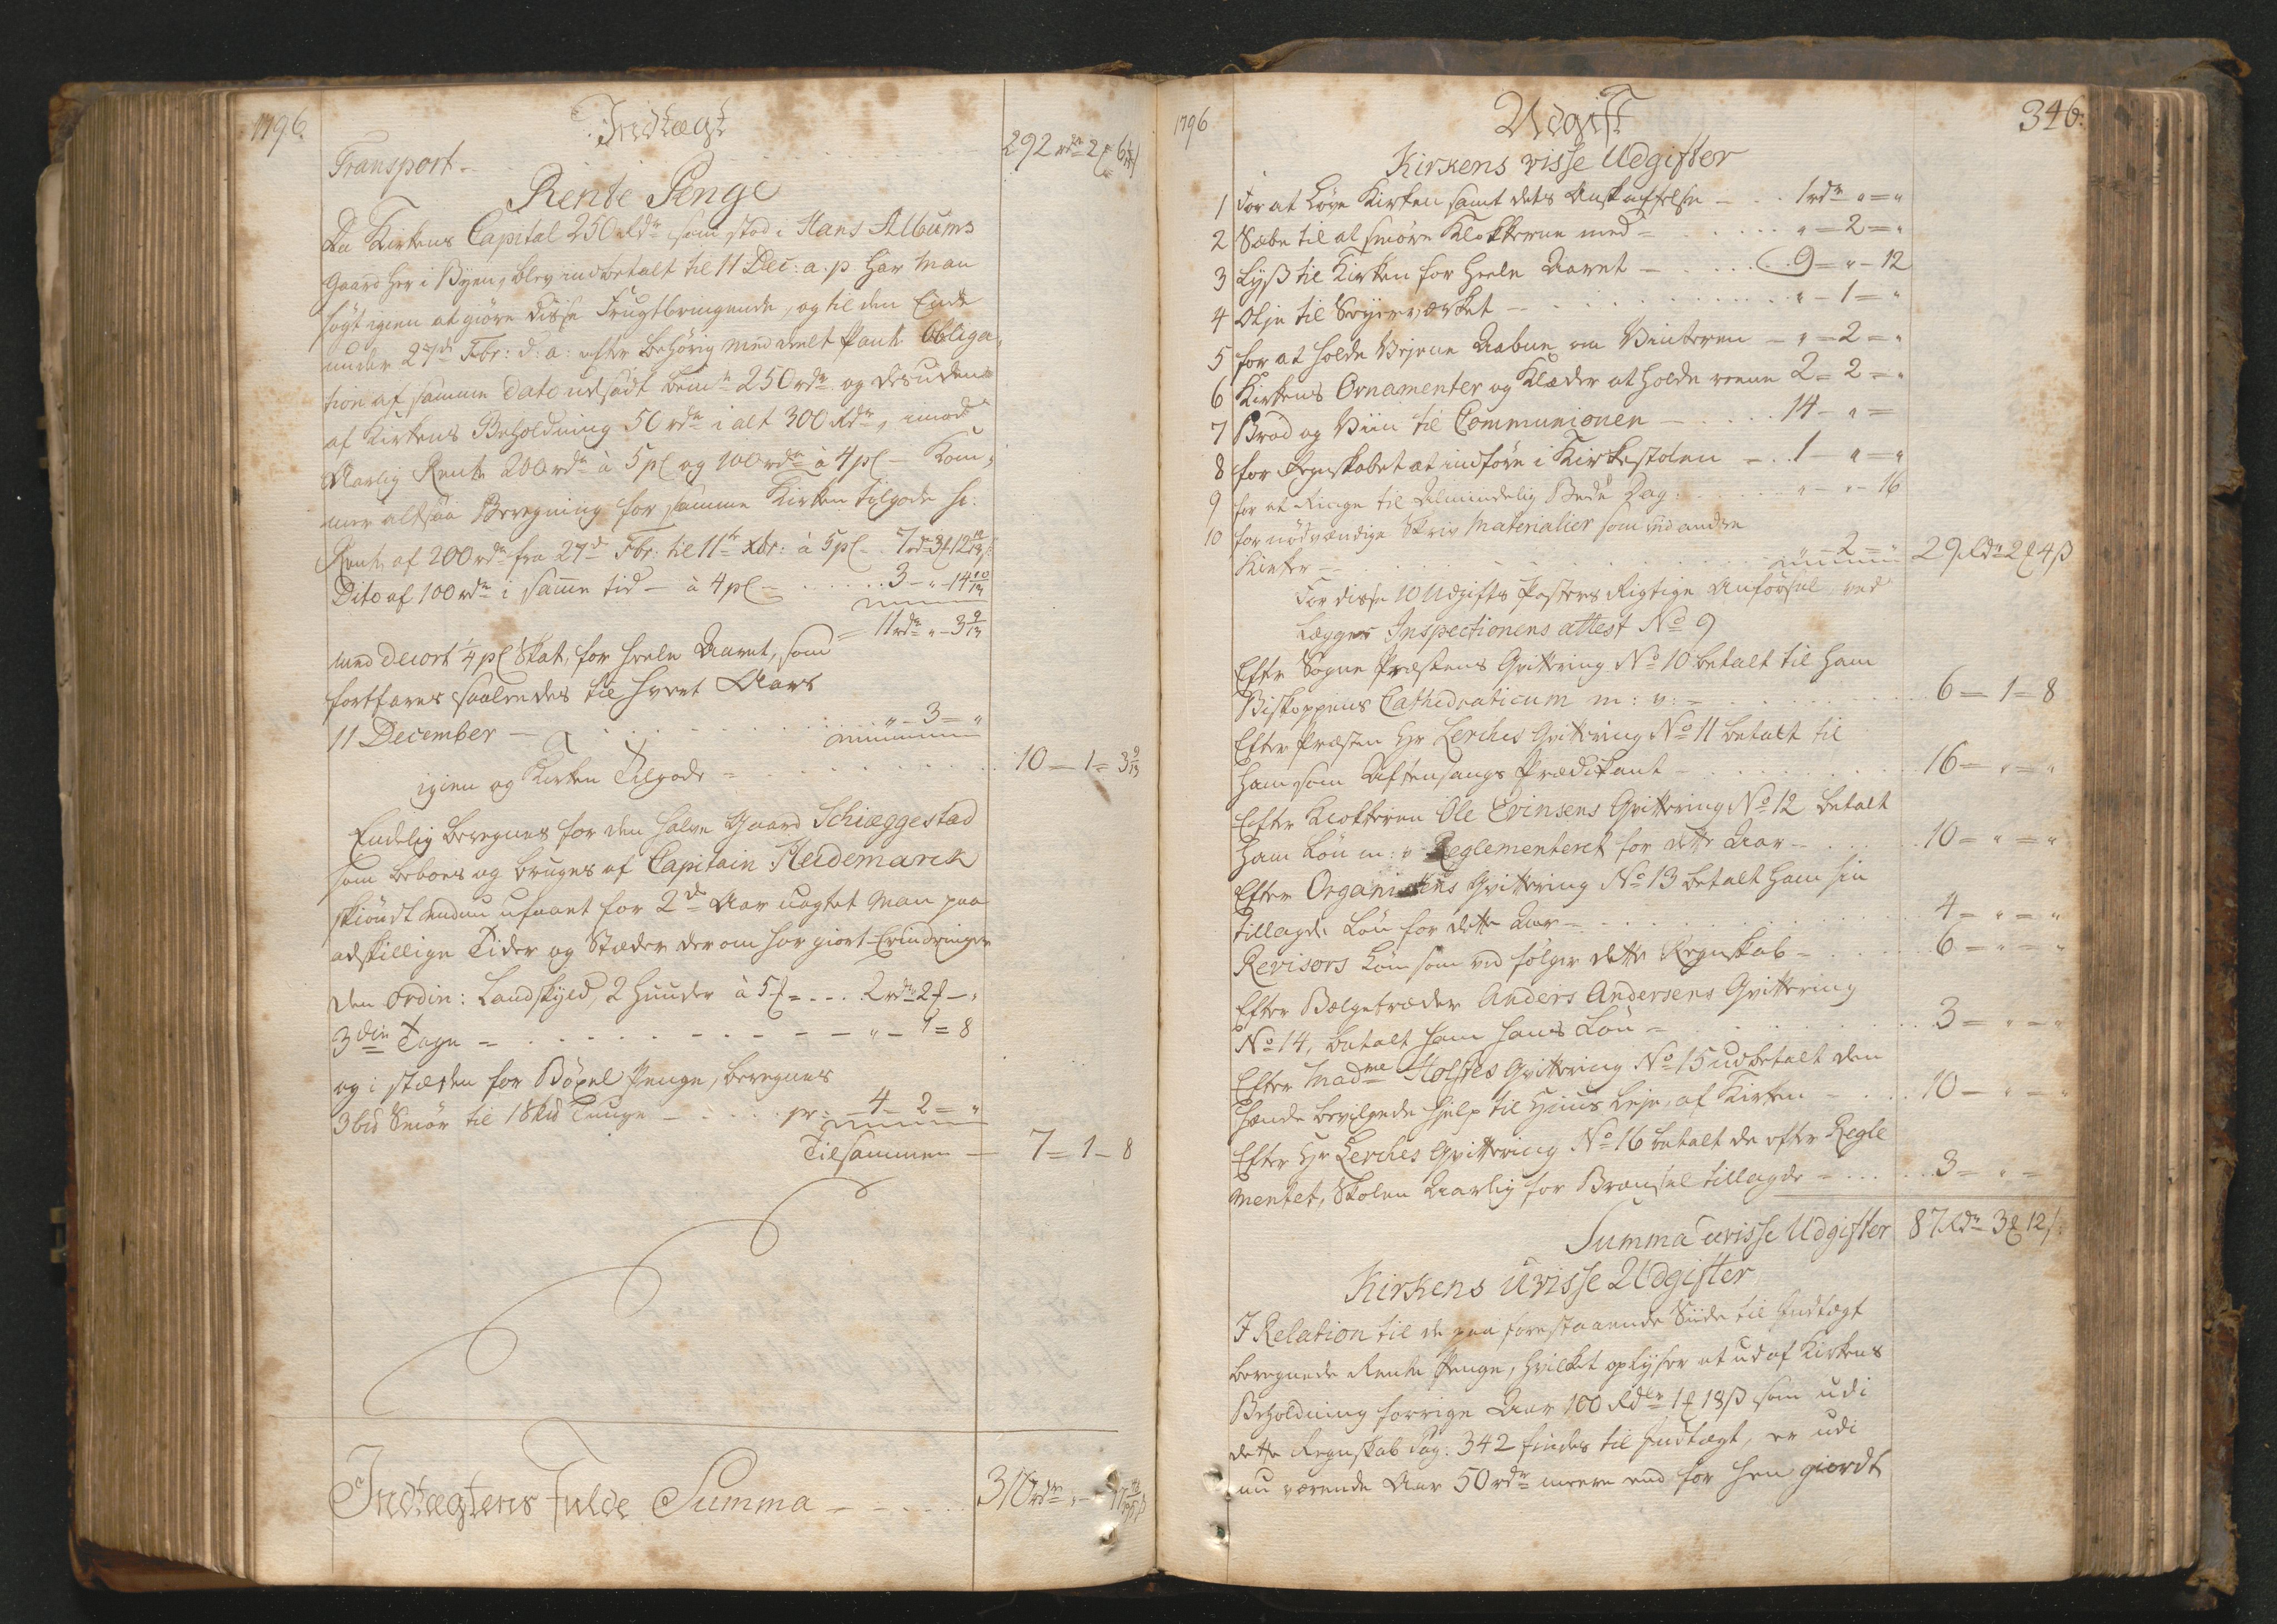 1796
Indtægt
Transport - 292 rdr 2 f 6
Rente Penge
Da Kirkens Capital 250 Rdr som stod i Hans Albums
Gaard her i Byen, blev indbetalt til 11 Dec: a. p har man
søgt igien at giøre disse Frugtbringende, og til den Ende
under 27de Fbr: d: a: efter behørig meddeelt Pant Obliga-
tion af samme Dato udsadt bemte 250 rdr og desuden
af Kirkens Beholdning 50 rdr i alt 300 Rdr, imod
Aarlig Rente 200 rdr à 5 pC og 100 rdr à 4 pC - Kom-
mer altsaa Beregning for samme Kirken tilgode sc:
Rente af 200 rdr fra 27de Fbr: til 11te Xbr: à 5 pC .. 7 rdr 3 f 12 12/13 s
Dito af 100 rdr i samme tid - à 4 pC - 3 - " - 14 10/13
= 11 rdr " - 3 9/13
med decort 1/4 pC Skat, for heele Aaret, som
fortfares saaledes til hvert Aars
11 December - " - 3 = "
igien og Kirken Tilgode - 10 - 1 = 3 9/13
Endelig beregnes for den halve Gaard Schiæggestad
som beboes og bruges af Capitain Heidemarck
skiøndt endnu ufaaet for 2de Aar uagtet man paa
adskillige Tider og Stæder derom har giort Erindringer
den ordin: Landskyld, 2 Huuder à 5 f = 2 rdr 2 f - "
3die Tage = " - 1 = 8
og i stæden for Böxel Penge, beregnes
3 bd Smør til 18 bd Tunge - pr: - 4 - 2 = "
Tilsammen - 7 = 1 - 8
Indtægtens Fulde Summa - 310 rdr " - 17
1796
Udgift
346:
Kirkens visse Udgifter
1 For at Løye Kirken samt dets Anskaffelse - 1 rdr " = "
2 Sæbe til at smøre Klokkerne med - " = 2 = "
3 Lyß til Kirken for heele Aaret - 9 = " - 12
4 Olje til Seyerværket - " - 1 = "
5 for at holde Vejene Aabne om Vinteren - " = 2 = "
6 Kirkens Ornamenter og Klæder at holde reene 2 = 2 = "
7 Brød og Viin til Communionen - 14 - " =
8 for Regnskabet at indføre i Kirkestolen - 1 - " = "
9 for at Ringe til Almindelig Bede Dag: " - " - 16
10 for nødvændige Skriv Materialier som ved andre
Kirker - " - 2 = " 29 Rdr 2 f 4 ß
For disse 10 Udgifts Posters Rigtige Anførsel ved
Lægges Inspectionens attest No 9
Efter Sogne Præstens Qvittering No 10 betalt til ham
Biskoppens Cathedraticum m: v: - 6 = 1 = 8
Efter Præsten Hr Lerches Qvittering No 11 betalt til
ham som Aftensangs Prædikant - 16 = " = "
Efter Klokkeren Ole Evinsens Qvittering No 12 betalt
ham Løn m: v Reglementeret for dette Aar - 10 = " = "
Efter Organistens Qvittering No 13 betalt ham sin
tillagde Løn for dette Aar - 4 = " = "
Revisors Løn som ved følger dette Regnskab - 6 = " = "
Efter Bælgetræder Anders Andersens Qvittering
No 14, betalt ham hans Løn = 3 = " = "
Efter Madme Holstes Qvittering No 15 udbetalt den
hende bevilgede hjelp til Huus Leje, af Kirken - 10 - " = "
Efter Hr Lerches Qvittering No 16 betalt de efter Regle
mentet, Skolen Aarlig for Brænsel tillagde - 3 = " =
Summa visse Udgifter 87 Rdr 3 f 12 s:
Kirkens Uvisse Udgifter
I Relation til de paa forestaaende Siide til Indtægt
beregnede Rente Penge, hvilket oplyser at ud af Kirkens
Beholdning forrige Aar 100 Rdlr 1 f 18 ß som udi
dette Regnskab Pag: 342 findes til Indtægt, er udi
nu værende Aar 50 rdr meere end for hen giordt